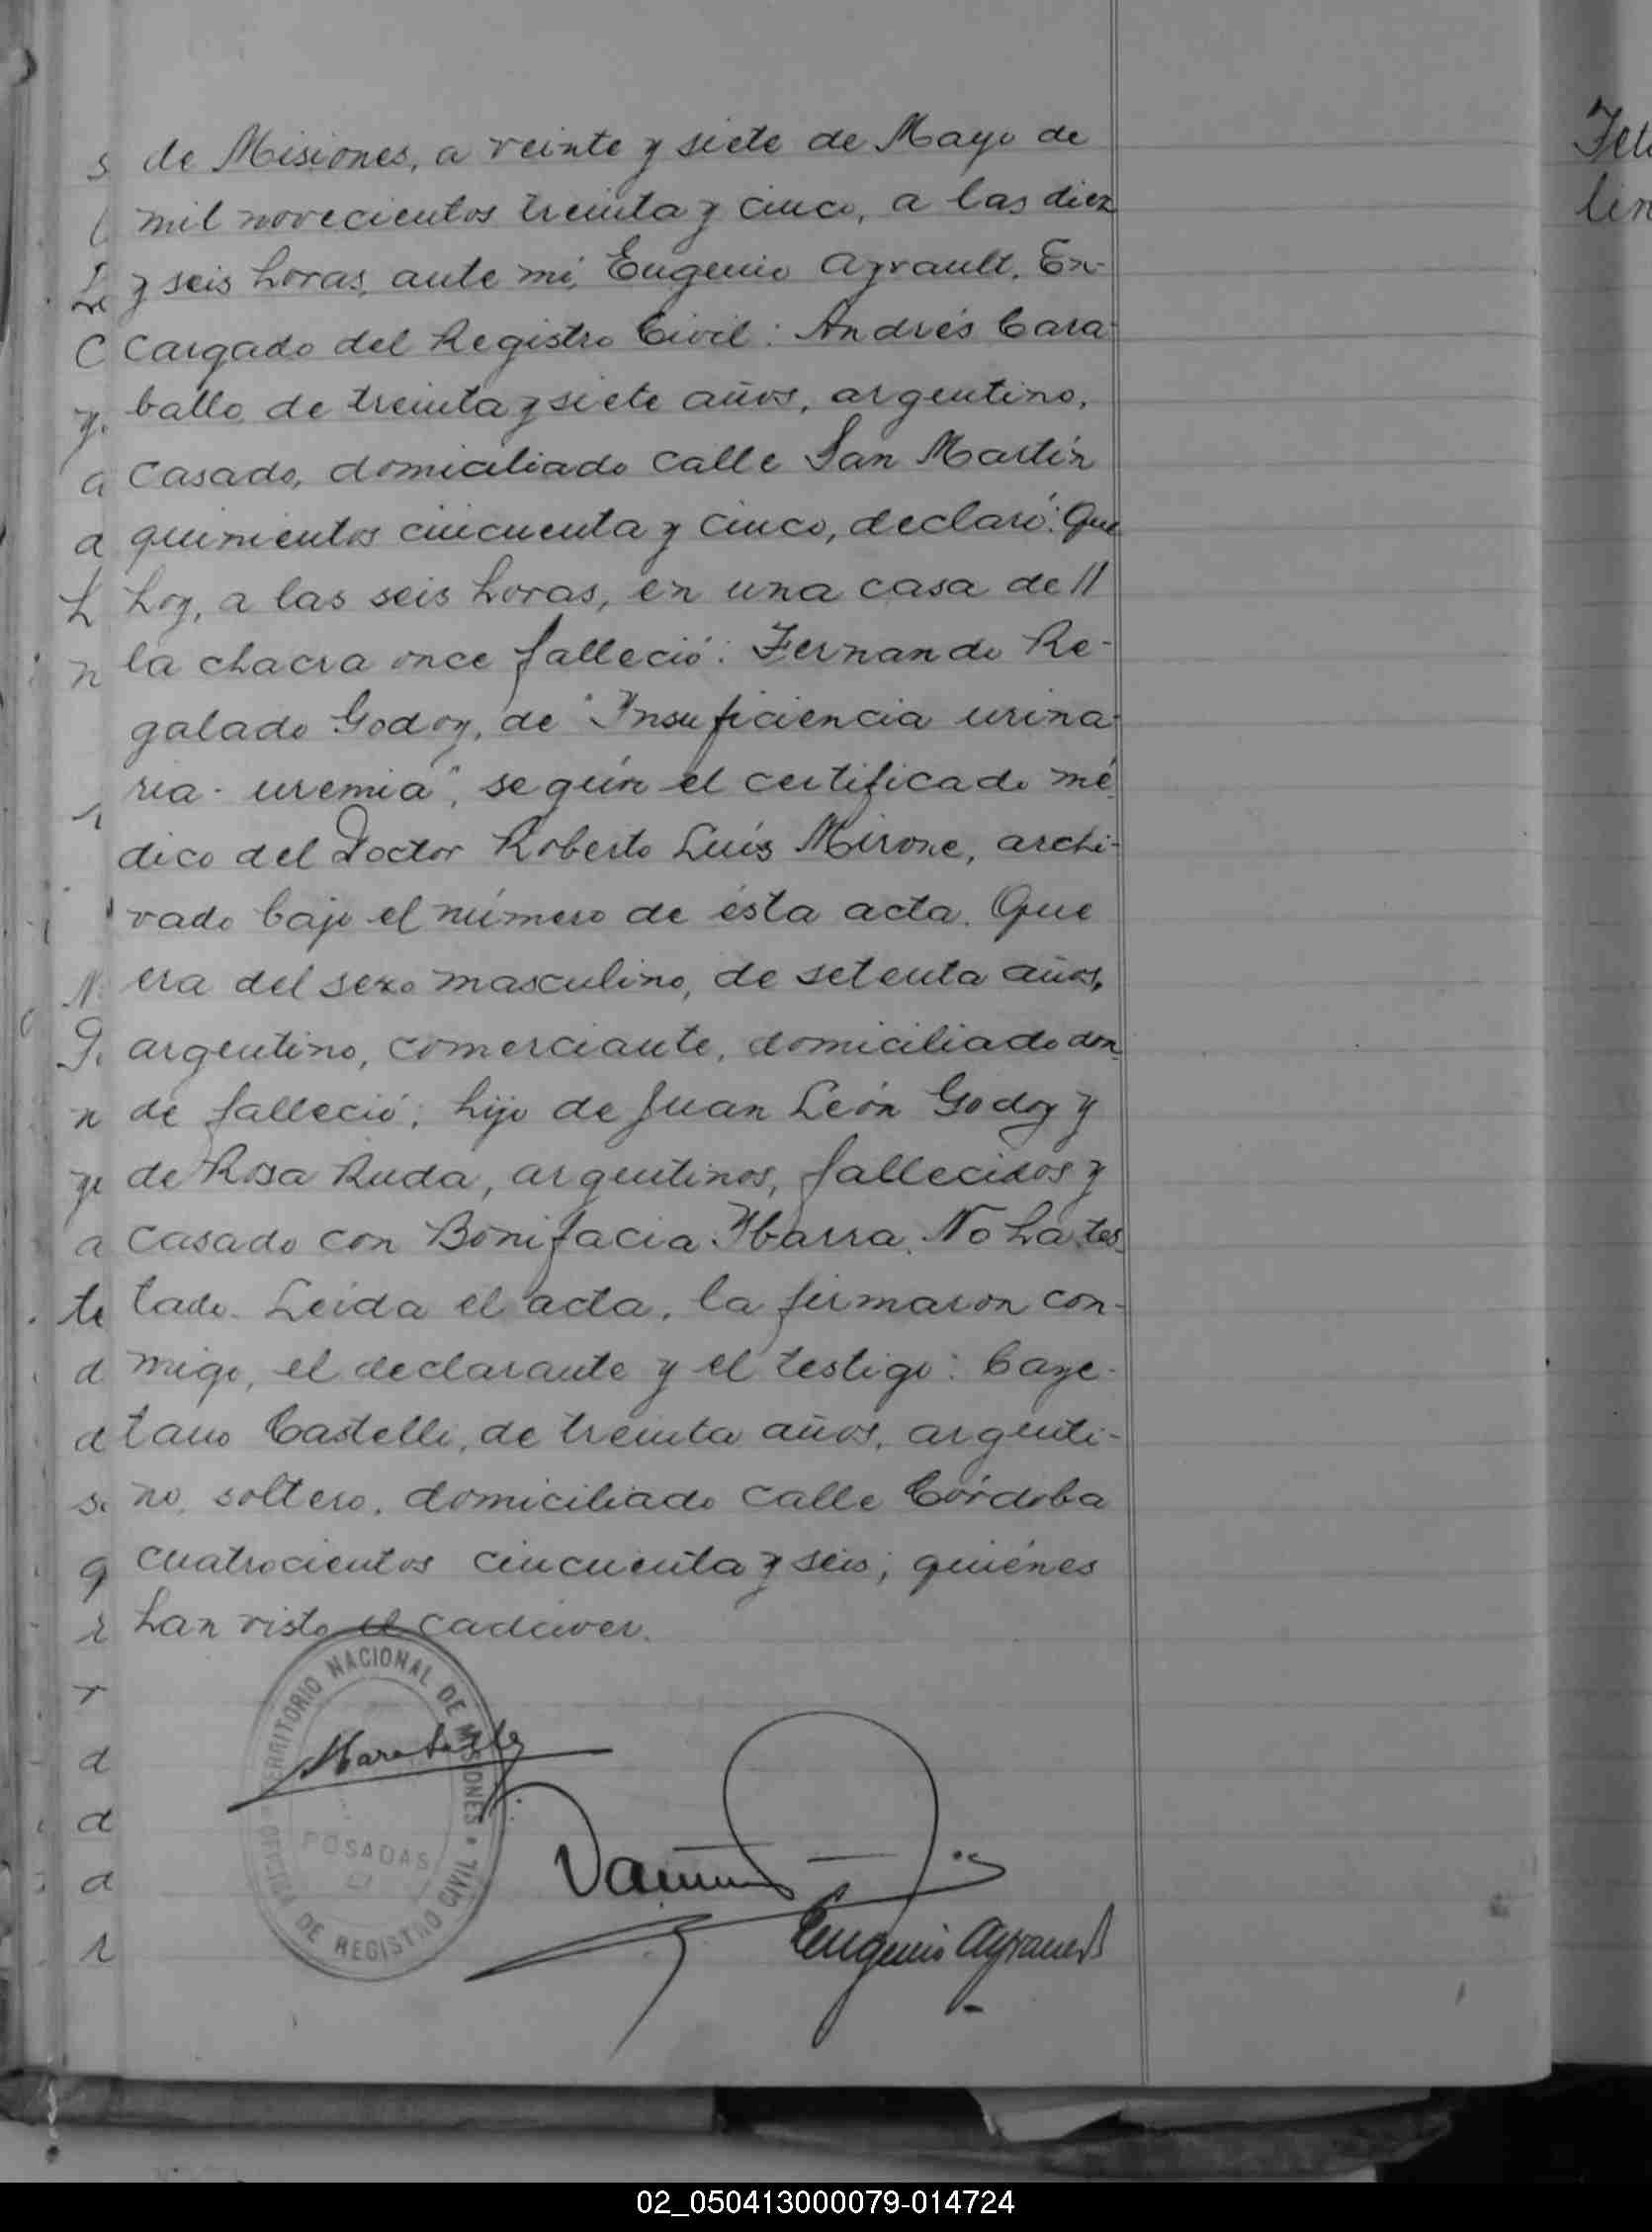 de Misiones, a veinte y siete de Mayo de
mil novecientos treinta y cinco, a las diez
y seis horas, ante mi, Eugenio Ayrault, En-
cargado del Registro Civil: Andrés Cara-
ballo, de treinta y siete años, argentino,
casado, domiciliado calle San Martín
quinientos cincuenta y cinco, declaró: Que
hoy, a las seis horas, en una casa de //
la chacra once falleció: Fernando Re-
galado Godoy, de "Insuficiencia urina-
ria - uremia", según el certificado mé-
dico del Doctor Roberto Luís Mirone, archi-
vado bajo el número de ésta acta. Que
era del sexo masculino, de setenta años,
argentino, comerciante, domiciliado don-
de falleció; hijo de Juan León Godoy y
de Rosa Ruda, argentinos, fallecidos y
casado con Bonifacia Ybarra. No ha tes-
tado. Leída el acta, la firmaron con-
migo, el declarante y el testigo: Caye-
tano Castelli, de treinta años, argenti-
no, soltero, domiciliado calle Córdoba
cuatrocientos cincuenta y seis; quiénes
han visto el cadáver.
TERRITORIO NACIONAL DE MISIONES
POSADAS
OFICINA DE REGISTRO CIVIL
Eugenio Ayrault
02_050413000079-014724